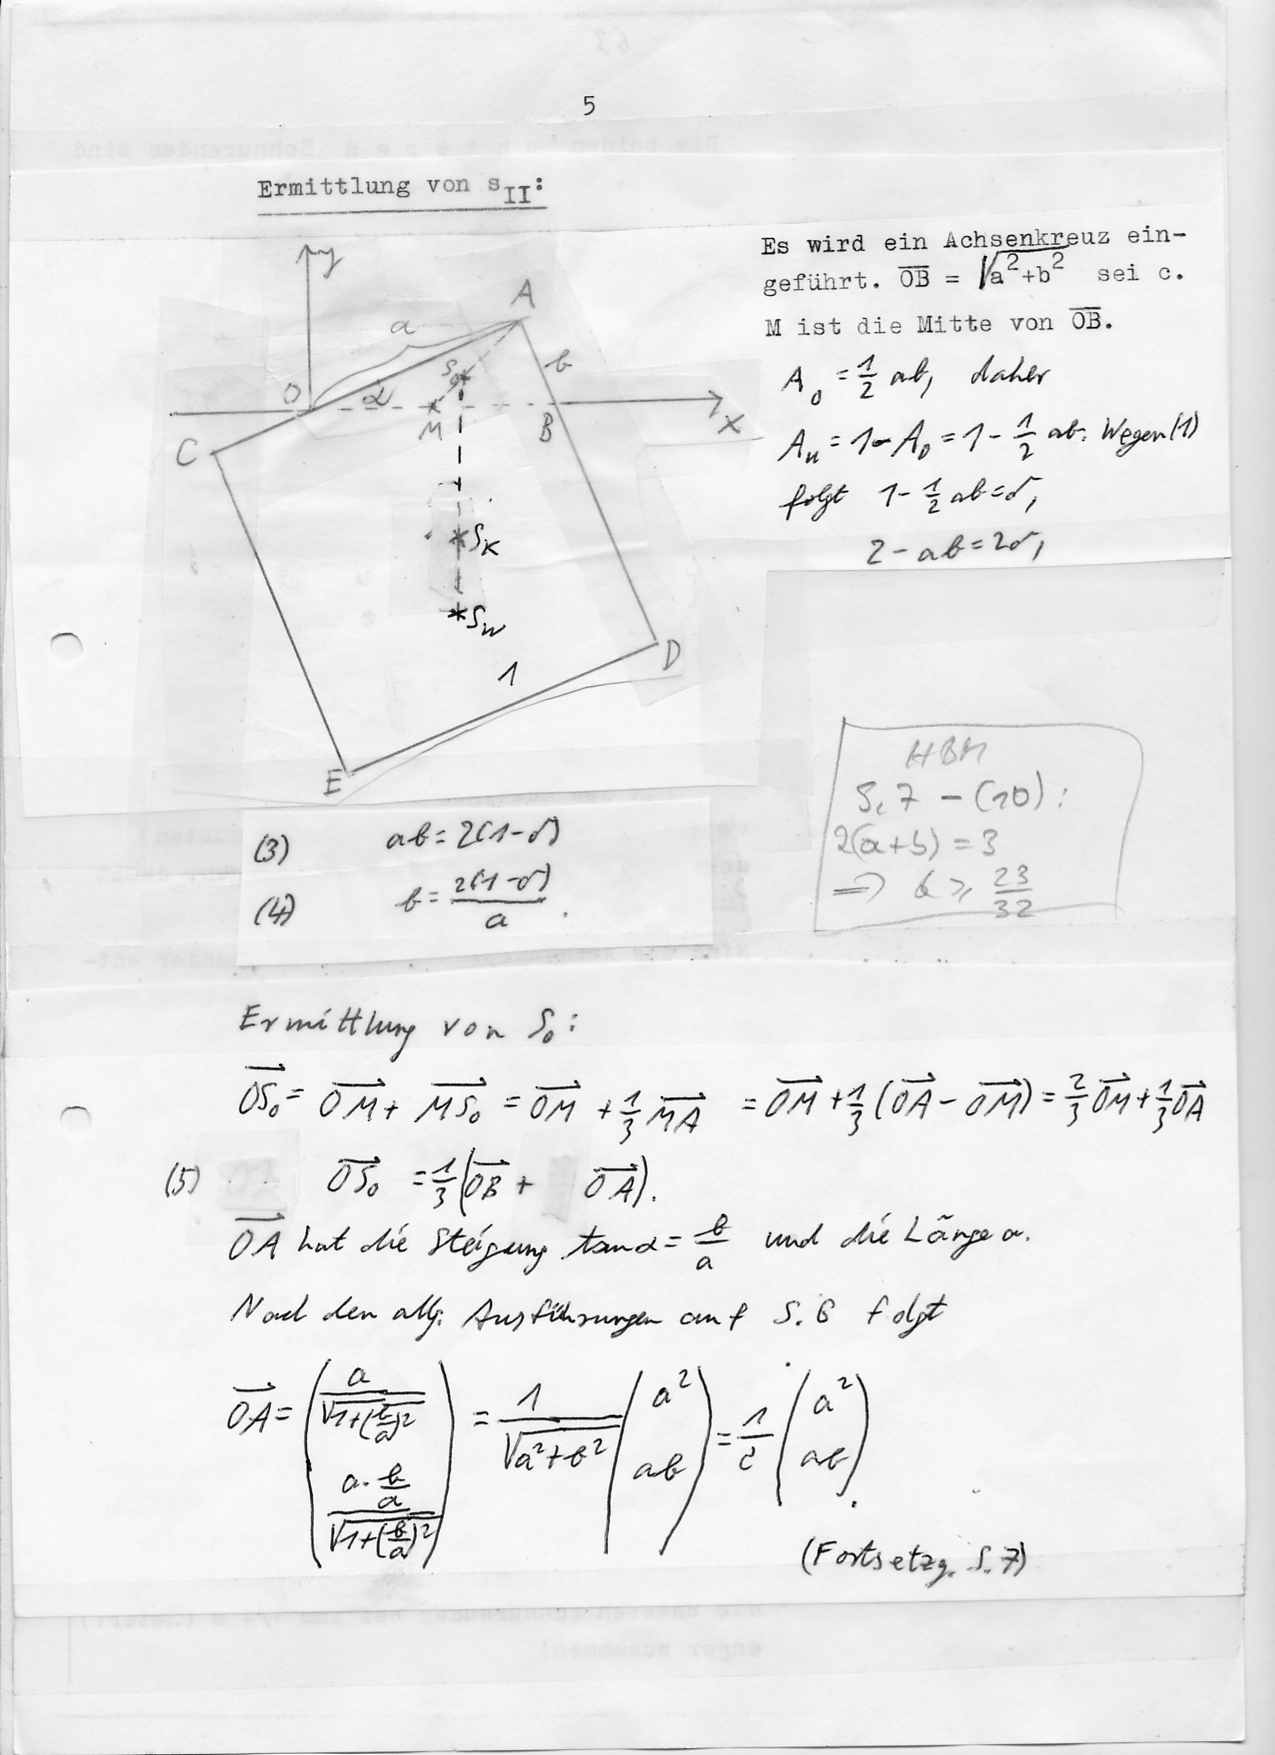 5
Ermittlung von s_II:
Es wird ein Achsenkreuz ein-
geführt. \overline{OB} = √(a²+b²) sei c.
M ist die Mitte von \overline{OB}.
A_o = 1/2 ab, daher
A_u = 1 - A_o = 1 - 1/2 ab. Wegen (1)
folgt 1 - 1/2 ab = σ,
2 - ab = 2σ,
y
A
a
b
S_o
O
α
M
B
X
C
S_K
S_W
1
D
E
HBM
S. 7 - (10):
2(a+b) = 3
⟹ σ ≥ 23/32
(3) ab = 2(1-σ)
(4) b = 2(1-σ)/a.
Ermittlung von S_o:
\vec{OS_o} = \vec{OM} + \vec{MS_o} = \vec{OM} + 1/3 \vec{MA} = \vec{OM} + 1/3 (\vec{OA} - \vec{OM}) = 2/3 \vec{OM} + 1/3 \vec{OA}
(5) \vec{OS_o} = 1/3 (\vec{OB} + \vec{OA}).
\vec{OA} hat die Steigung tan α = b/a und die Länge a.
Nach den allg. Ausführungen auf S. 6 folgt
\vec{OA} = (a/√(1+(b/a)²), a·b/a/√(1+(b/a)²)) = 1/√(a²+b²) (a², ab) = 1/c (a², ab).
(Fortsetzg. S. 7)